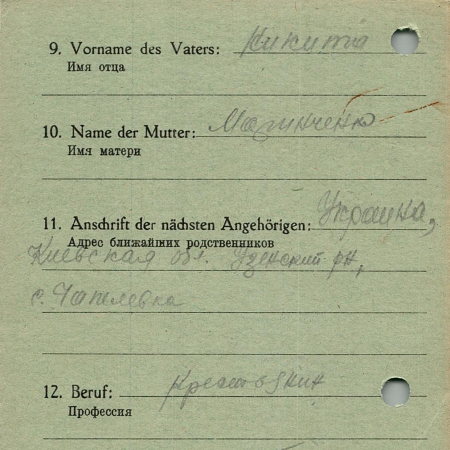 9. Vorname des Vaters: Никита
Имя отца
10. Name der Mutter: Магинченко
Имя матери
11. Anschrift der nächsten Angehörigen: Украина,
Адрес ближайших родственников
Киевская обл. Узенский рн,
с. Чапаевка
12. Beruf:
Профессия